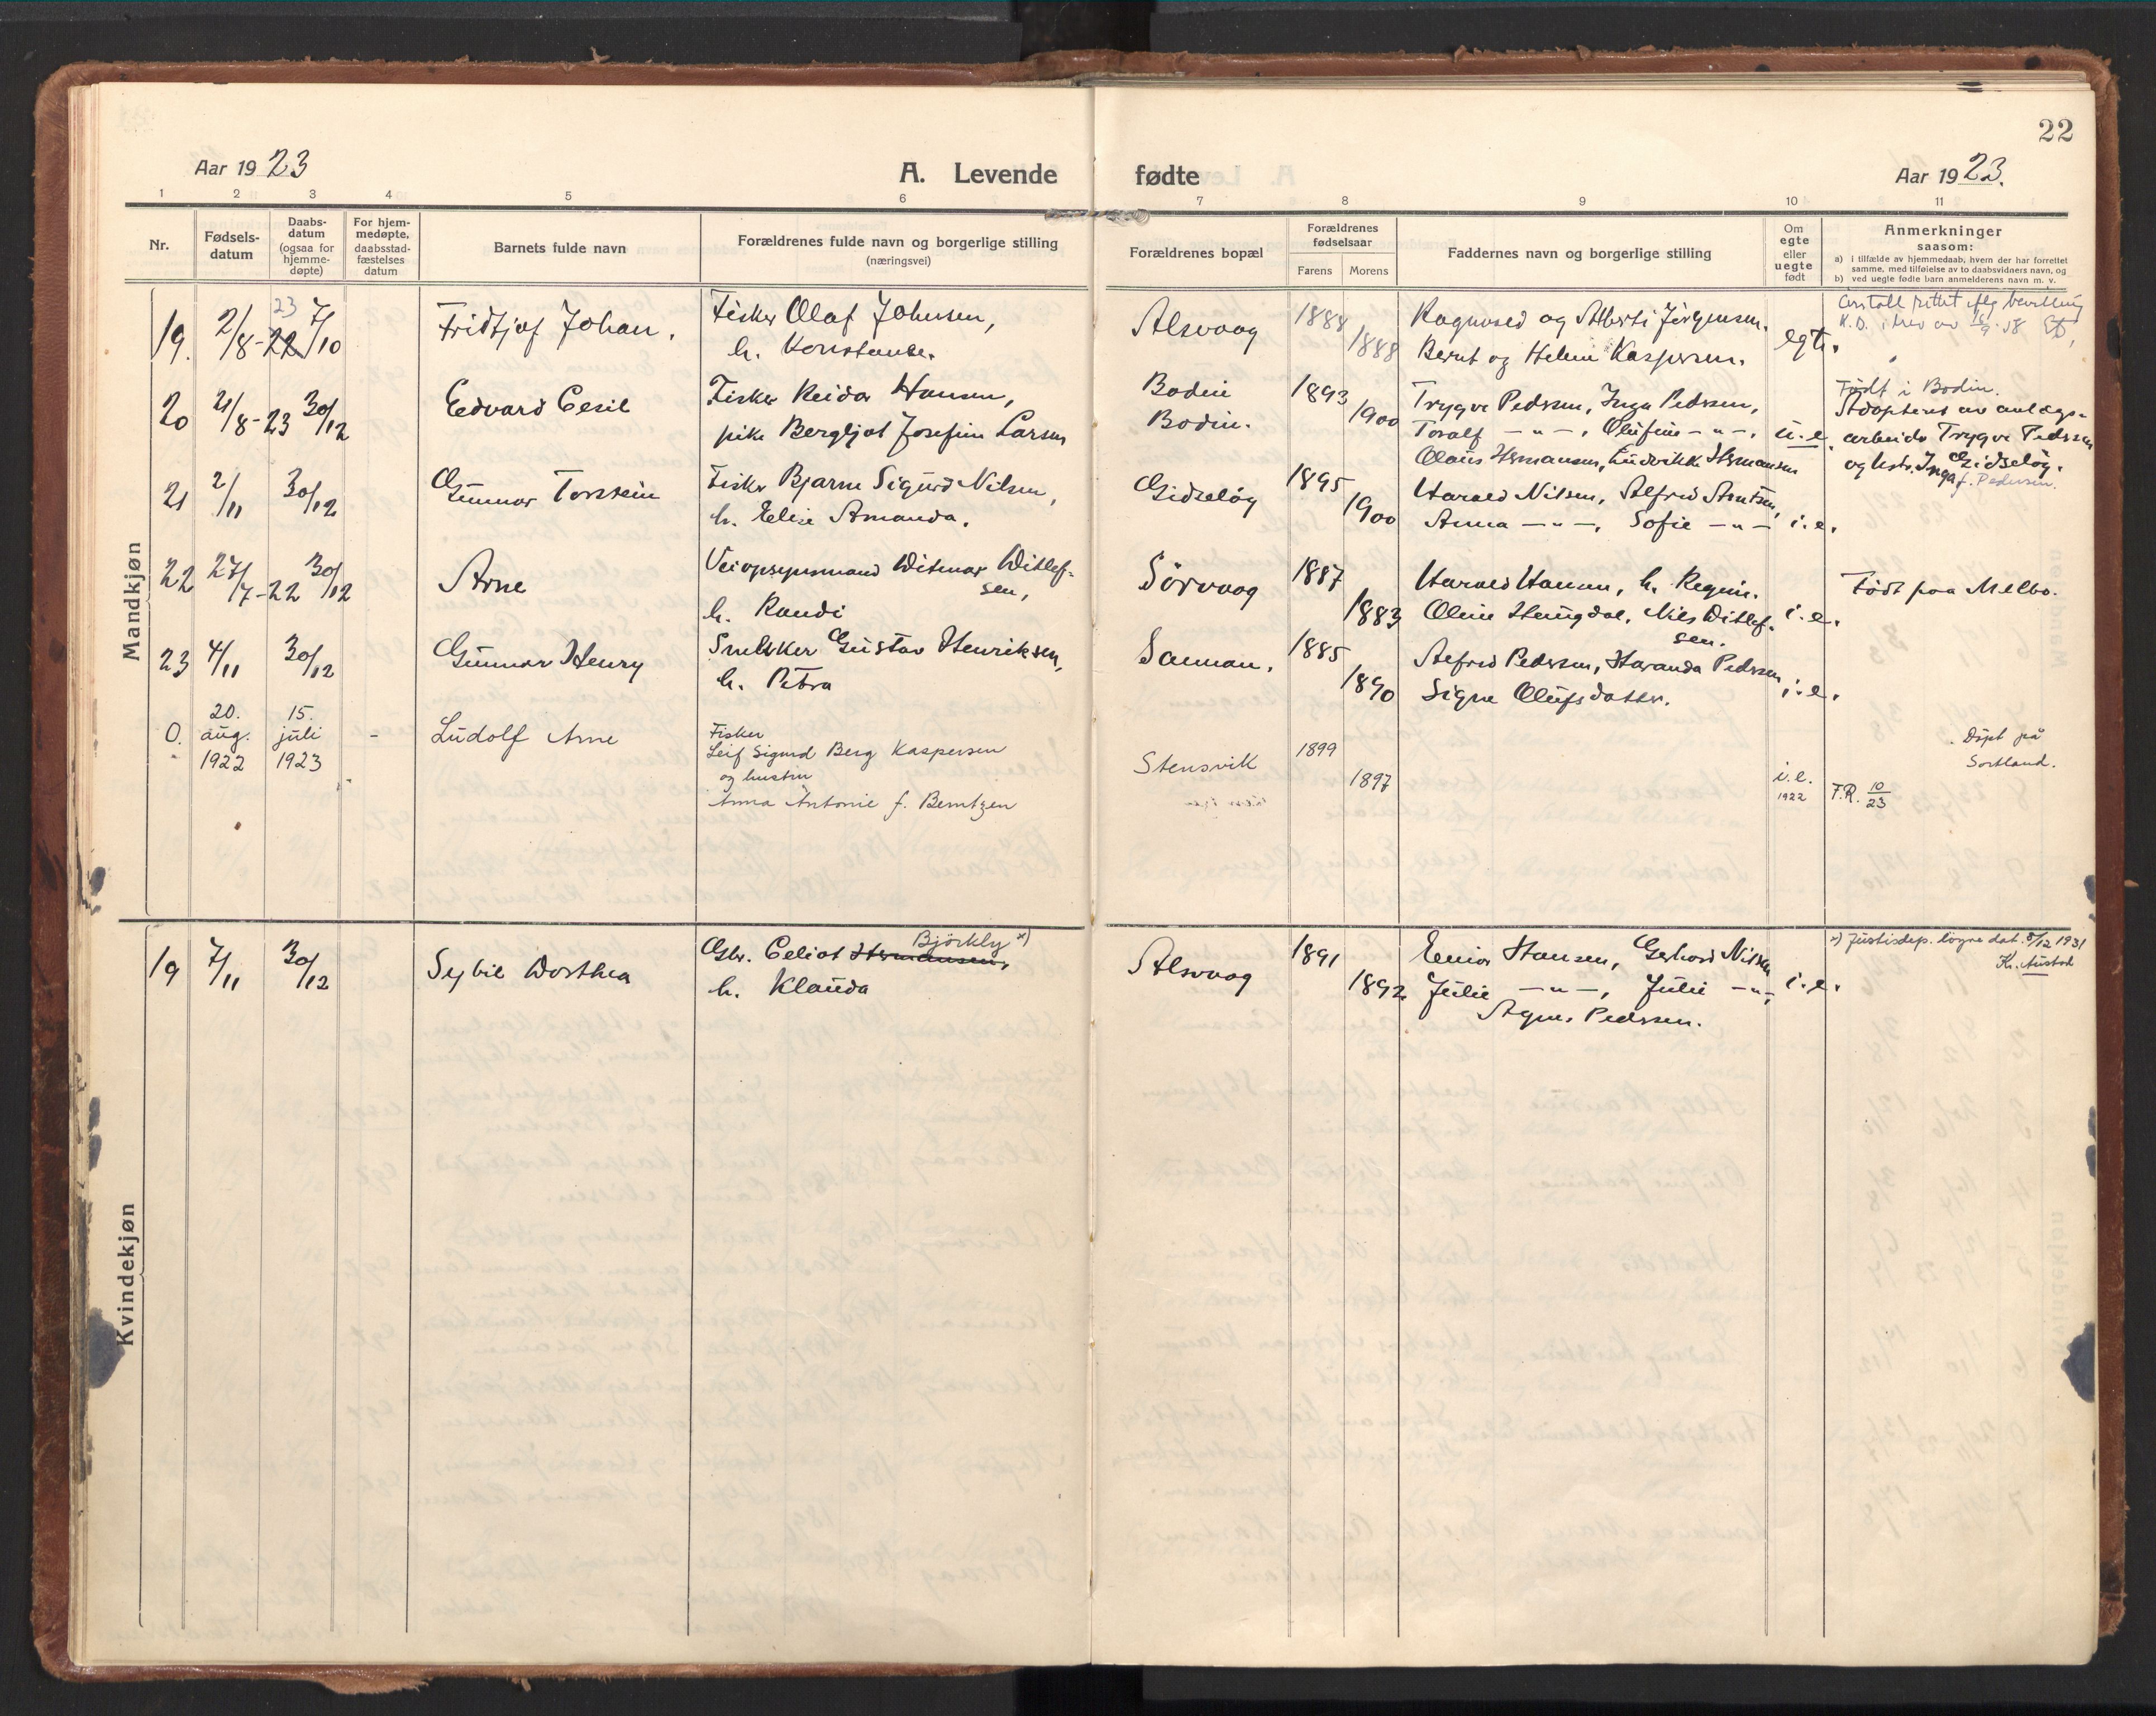 22
Aar 1923
A. Levende
fødte
Aar 1923.
1 2 3 4 5 6 7 8 9 10 11
Nr.
Fødsels-
datum
Daabs-
datum
(ogsaa for
hjemme-
døpte)
For hjem-
medøpte,
daabsstad-
fæstelses
datum
Barnets fulde navn
Forældrenes fulde navn og borgerlige stilling
(næringsvei)
Forældrenes bopæl
Forældrenes
fødselsaar
Farens Morens
Faddernes navn og borgerlige stilling
Om
egte
eller
uegte
født
Anmerkninger
saasom:
a) i tilfælde av hjemmedaab, hvem der har forrettet
samme, med tilføielse av to daabsvidners navn, og
b) ved uegte fødte barn anmelderens navn m. v.
Mandkjøn
19. 2/8-22 23 7/10 Fridtjof Johan.
Fisker Olaf Johnsen,
h. Konstanse.
Alsvaag 1888 1888
Ragnvald og Alberti Jörgensen.
Bernt og Helene Kaspersen.
egte.
20 21/8-23 30/12 Edvard Cesil
Fisker Reidar Hansen,
pike Bergljot Josefine Larsen
Bodin
Bodin.
1893 1900
Trygve Pedersen, Inga Pedersen,
Toralf -"-, Olufine -"-,
Olaus Hermansen, Ludvikke Hermansen
u.e.
Födt i Bodin.
Adopteret av anlægs-
arbeider Trygve Pedersen
og hstr. Inga Gidselög.
f. Pedersen.
21 2/11 30/12 Gunnar Torstein
Fisker Bjarne Sigurd Nilsen,
h. Elise Amanda.
Gidselög 1895 1900
Harald Nilsen, Alfred Arntsen,
Anna -"-, Sofie -"-
i.e.
22 27/7-22 30/12 Arne
Veiopsynsmand Ditmar Ditlef-
sen,
h. Randi
Sörvaag 1887 1883
Harald Hansen, h. Regine.
Oline Hemgdal, Nils Ditlef-
sen.
i.e.
Födt paa Melbo.
23 4/11 30/12 Gunnar Henry
Snekker Gustav Henriksen,
h. Petra
Sannan. 1885 1890
Alfred Pedersen, Haranda Pedersen
Signe Olufsdatter.
i.e.
0. 20. aug. 1922 15. juli 1923 - Ludolf Arne
Fisker
Leif Sigurd Berg Kaspersen
og hustru
Anna Antonie f. Berntzen
Stensvik 1899 1897
i.e.
1922
Döpt på
Sortland.
F.R. 10/23
Kvindekjøn
19 7/11 30/12 Sybil Dorthea
Björkly x)
Gbr. Eeliot Hermansen,
h. Klauda
Alsvaag 1891 1892
Einar Hansen, Gerhard Nilsen
Julie -"-, Julie -"-,
Agnes Pedersen.
i.e.
x) Justisdep. løyve dat. 5/12 1931
Kr. Austad